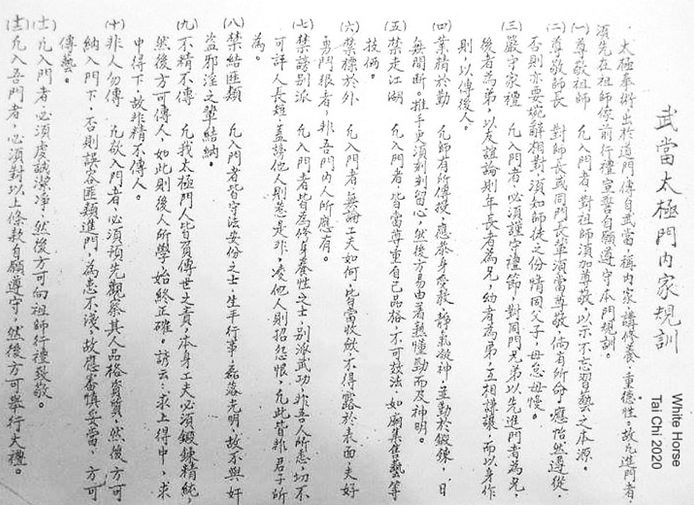 武當太極門內家規訓
太極拳術出於道門傳自武當稱內家講修養，重德性。故凡進門者，
須先在祖師像前行禮宣誓自願遵守本門規訓。
(一)尊敬祖師　凡入門者對祖師須備尊敬，以示不忘習藝之本源。
(二)尊敬師長　對師長或同門長輩須當尊敬，倘有所命，應恪然遵從，
否則亦要婉辭相對，須知師徒之份情同父子，毋怠毋慢。
(三)嚴守家禮　凡入門者，必須謹守禮節，對同門兄弟以先進門者為兄，
後者為弟，以友誼論則年長者為兄，幼者為弟，互相謙讓，而以身作
則，以傳後人。
(四)業精於勤　凡師有所傳授，應恭身受教，靜氣凝神，並勤於鍛鍊，日
無間斷。推手更須刻刻留心，然後方易由着熟懂勁而及神明。
(五)禁走江湖　凡入門者，皆當尊重自己品格，不可放法，如廟集售藝等
技倆。
(六)禁標於外　凡入門者，無論工夫如何，皆當收歛，不得露於表面，夫好
勇鬥狠者，非吾門內人所應有。
(七)禁謗別派　凡入門者皆為修身養性之士，別派武功非吾人所悉，切不
可評人長短，蓋謗他人則惹是非，凌他人則招怨恨，凡此皆非君子所
為。
(八)禁結匪類　凡入門者皆守法安份之士，生平行事，磊落光明，故不與奸
盜邪淫之輩結納。
(九)不精不傳　凡我太極門人皆負傳世之責，本身工夫必須鍛鍊精純，
然後方可傳人，如此則後人所學，始終正確。諺云：求上得中，求
中得下，故非精不傳人。
(十)非人勿傳　凡欲入門者，必須預先觀察其人品格資質，然後方可
納入門下，否則誤容匪類進門，為患不淺，故應審慎妥當，方可
傳藝。
(十一)凡入門者必須虔誠潔淨，然後方可向祖師行禮致敬。
(十二)凡入吾門者，必須對以上條款自願遵守，然後方可舉行大禮。
White Horse
Tai Chi 2020